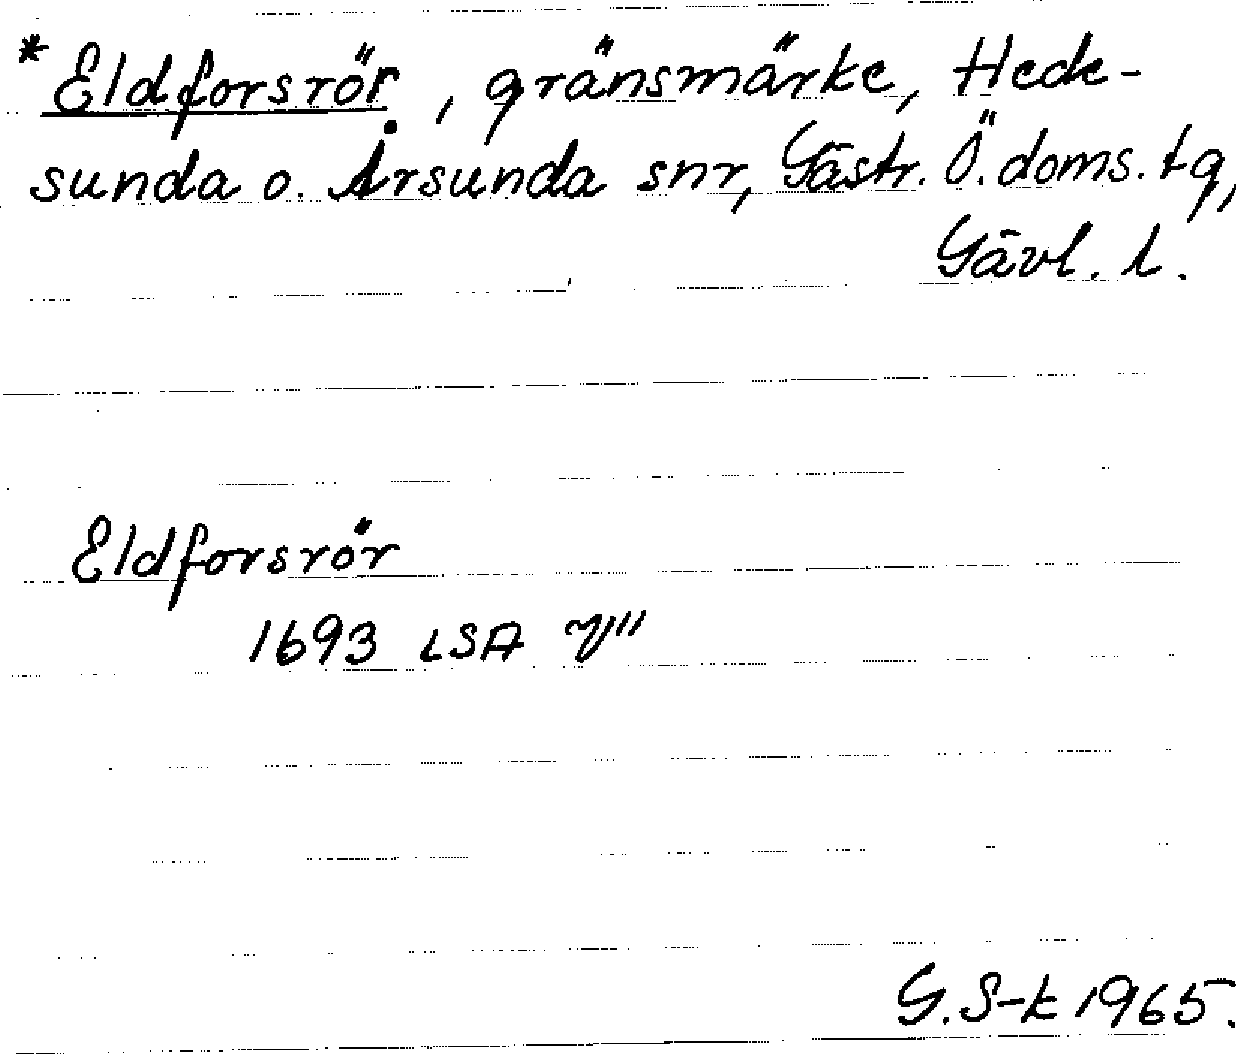 *Eldforsrör, gränsmärke, Hede-
sunda o. Årsunda snr, Gästr. Ö. doms. tg,
Gävl. l.
Eldforsrör
1693 LSA
G. S-k 1965.